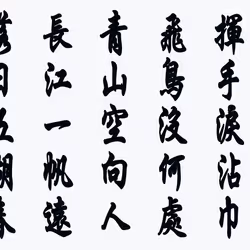 揮手淚沾巾
飛鳥沒何處
青山空向人
長江一帆遠
落日五湖春